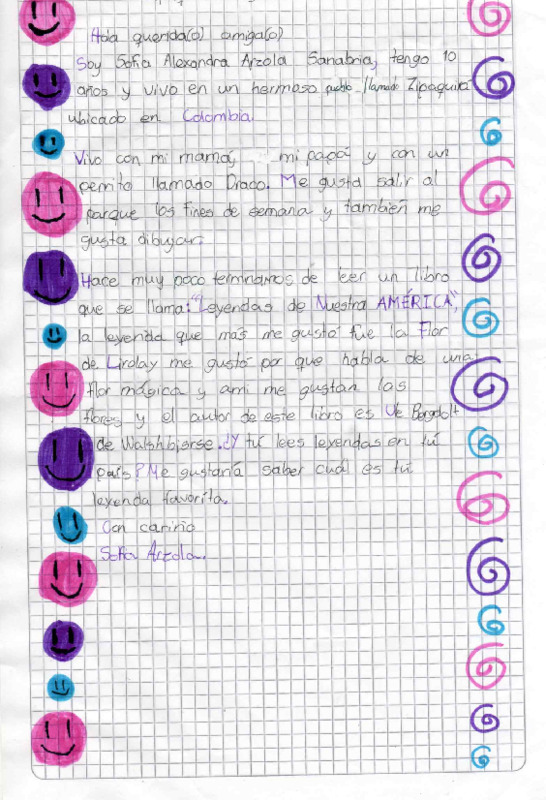 Hola querida(o) amiga(o)
Soy Sofia Alexandra Arzola Sanabria, tengo 10
años y vivo en un hermoso pueblo llamado Zipaquira
ubicado en Colombia.
Vivo con mi mamá, mi papá y con un
perrito llamado Draco. Me gusta salir al
parque los fines de semana y también me
gusta dibujar.
Hace muy poco terminamos de leer un libro
que se llama: "Leyendas de Nuestra AMÉRICA",
la leyenda que más me gustó fue la Flor
de Lirolay me gustó por que habla de una
flor mágica y ami me gustan las
flores y el autor de este libro es Ute Bergdolt
de Walshbjerse. ¿Y tú lees leyendas en tú
país? Me gustaría saber cuál es tú
leyenda favorita.
Con cariño
Sofia Arzola.